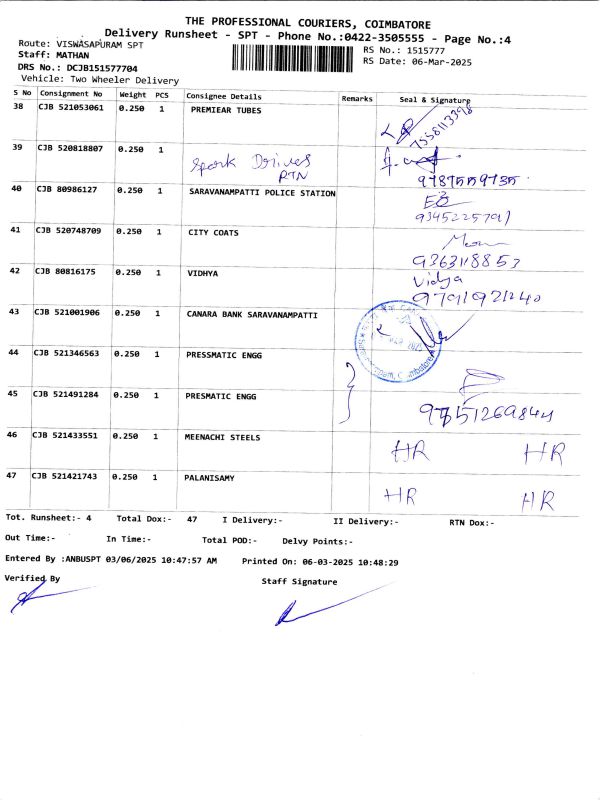 THE PROFESSIONAL COURIERS, COIMBATORE
Delivery Runsheet - SPT - Phone No.:0422-3505555 - Page No.:4
Route: VISWASAPURAM SPT
RS No.: 1515777
Staff: MATHAN
RS Date: 06-Mar-2025
DRS No.: DCJB151577704
Vehicle: Two Wheeler Delivery
S No Consignment No Weight PCS Consignee Details Remarks Seal & Signature
38 CJB 521053061 0.250 1 PREMIEAR TUBES
7558113398
39 CJB 520818807 0.250 1
Spork Drives
RTN
9787559735
40 CJB 80986127 0.250 1 SARAVANAMPATTI POLICE STATION
9345225791
41 CJB 520748709 0.250 1 CITY COATS
9363118853
42 CJB 80816175 0.250 1 VIDHYA
Vidya
9791921240
43 CJB 521001906 0.250 1 CANARA BANK SARAVANAMPATTI
44 CJB 521346563 0.250 1 PRESSMATIC ENGG
45 CJB 521491284 0.250 1 PRESMATIC ENGG
9751269844
46 CJB 521433551 0.250 1 MEENACHI STEELS HR HR
47 CJB 521421743 0.250 1 PALANISAMY HR HR
Tot. Runsheet:- 4 Total Dox:- 47 I Delivery:- II Delivery:- RTN Dox:-
Out Time:- In Time:- Total POD:- Delvy Points:-
Entered By :ANBUSPT 03/06/2025 10:47:57 AM Printed On: 06-03-2025 10:48:29
Verified By Staff Signature